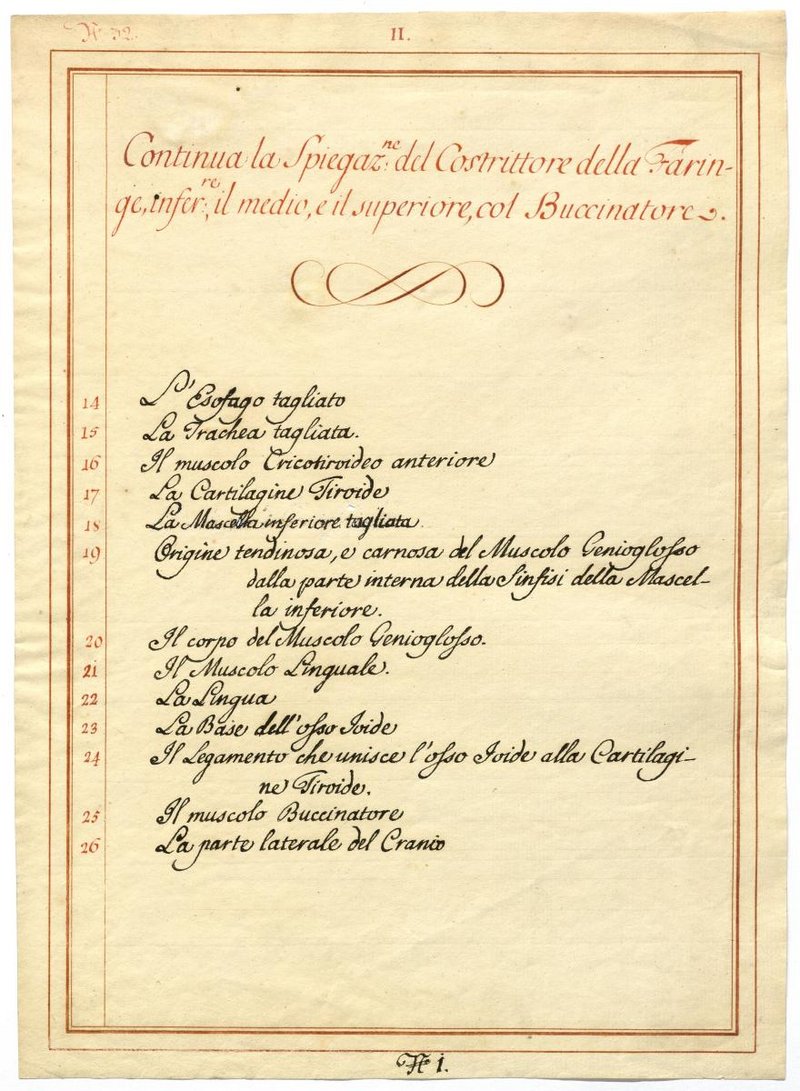 N. 32.
II.
Continua la Spiegaz:ne del Costrittore della Farin-
ge, infer:re, il medio, e il superiore, col Buccinatore.
14 L'Esofago tagliato
15 La Trachea tagliata.
16 Il muscolo Cricotiroideo anteriore
17 La Cartilagine Tiroide
18 La Mascella inferiore tagliata.
19 Origine tendinosa, e carnosa del Muscolo Genioglosso
dalla parte interna della Sinfisi della Mascel-
la inferiore.
20 Il corpo del Muscolo Genioglosso.
21 Il Muscolo Linguale.
22 La Lingua
23 La Base dell'osso Ioide
24 Il Legamento che unisce l'osso Ioide alla Cartilagi-
ne Tiroide.
25 Il muscolo Buccinatore
26 La parte laterale del Cranio
N. 1.